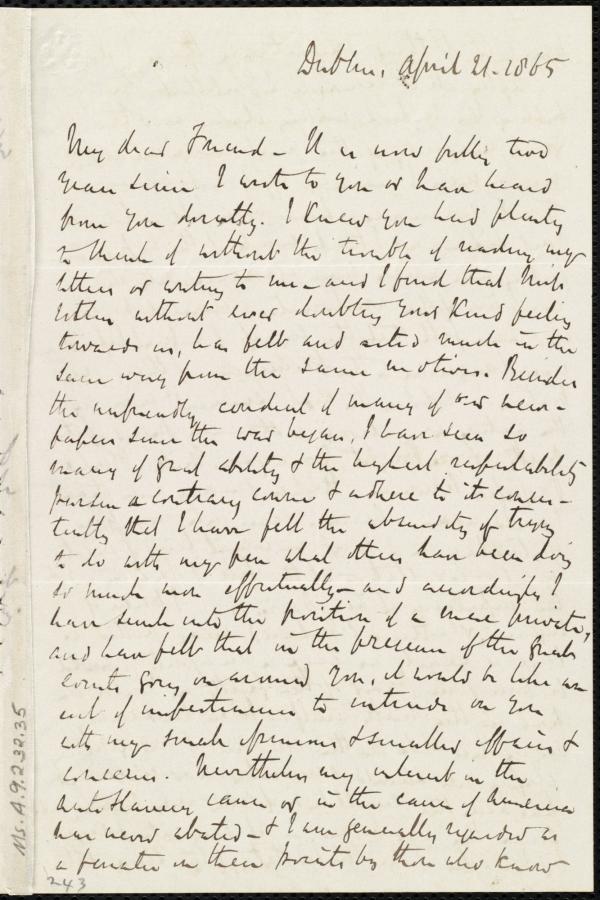 Dublin, April 21. 1865
My dear Friend - It is now fully two
years since I wrote to you or have heard
from you directly. I knew you had plenty
to think of without the trouble of reading my
letters or writing to me - and I find that Miss
Estlin without ever doubting your kind feeling
towards us, has felt and acted much in the
same way from the same motives. Besides
the unfriendly conduct of many of our news-
papers since the war began, I have seen so
many of great ability & the highest respectability
pursue a contrary course & adhere to it consis-
tently that I have felt the absurdity of trying
to do with my pen what others have been doing
so much more effectually - and accordingly I
have sunk into the position of a mere private,
and have felt that in the presence of the great
events going on around you, it would be like an
act of impertinence to intrude on you
with my small opinions & smaller affairs &
concerns. Nevertheless my interest in the
Anti Slavery cause or in the cause of America
has never abated - & I am generally regarded as
a fanatic on these points by those who know
Ms. A.9.2.32.35
243